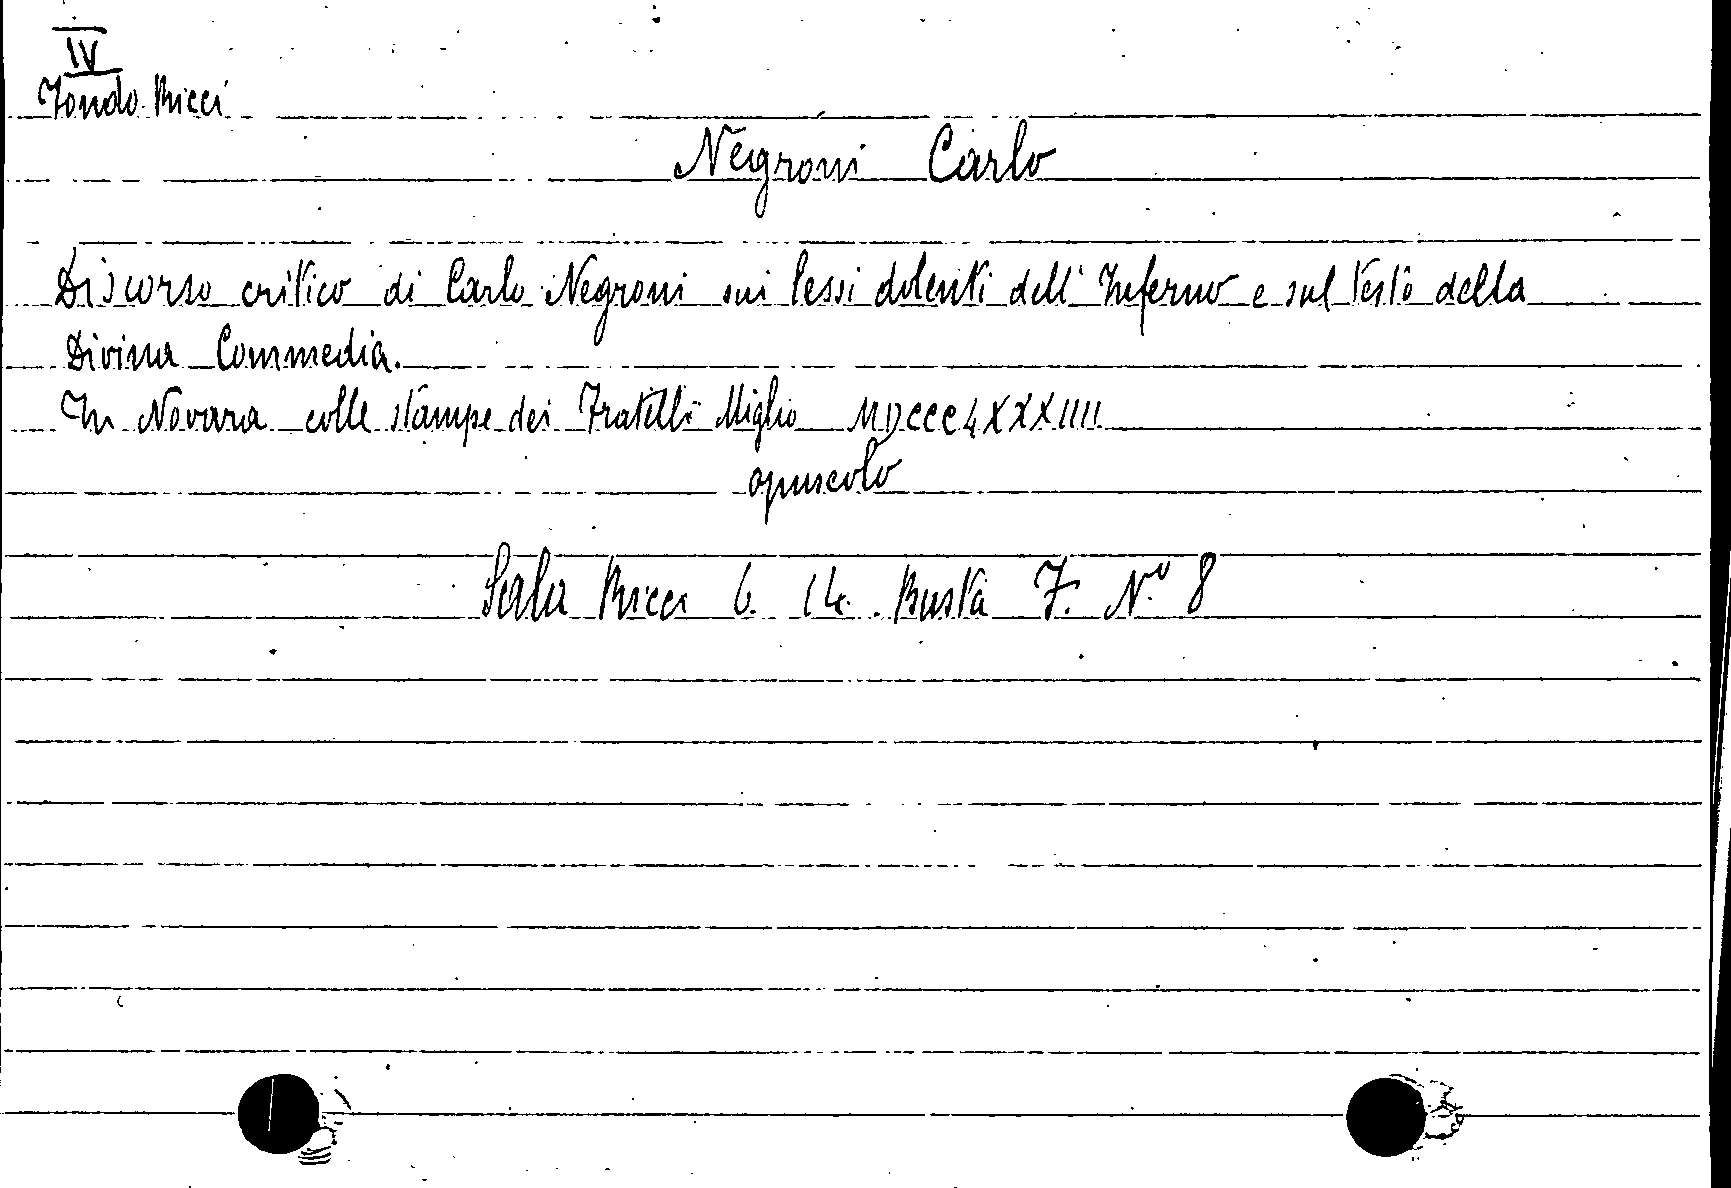 IV
Fondo Ricci
Negroni Carlo
Discorso critico di Carlo Negroni sui lessi dolenti dell'Inferno e sul testo della
Divina Commedia.
In Novara colle stampe dei Fratelli Miglio MDCCCLXXXIIII
opuscolo
Sala Ricci 6. 14. Busta 7. N.º 8